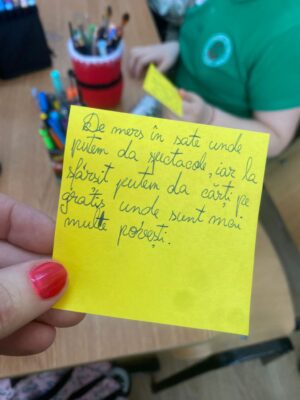 De mers în sate unde
putem da spectacole, iar la
sfârsit putem da cărți pe
gratis unde sunt mai
multe povești.